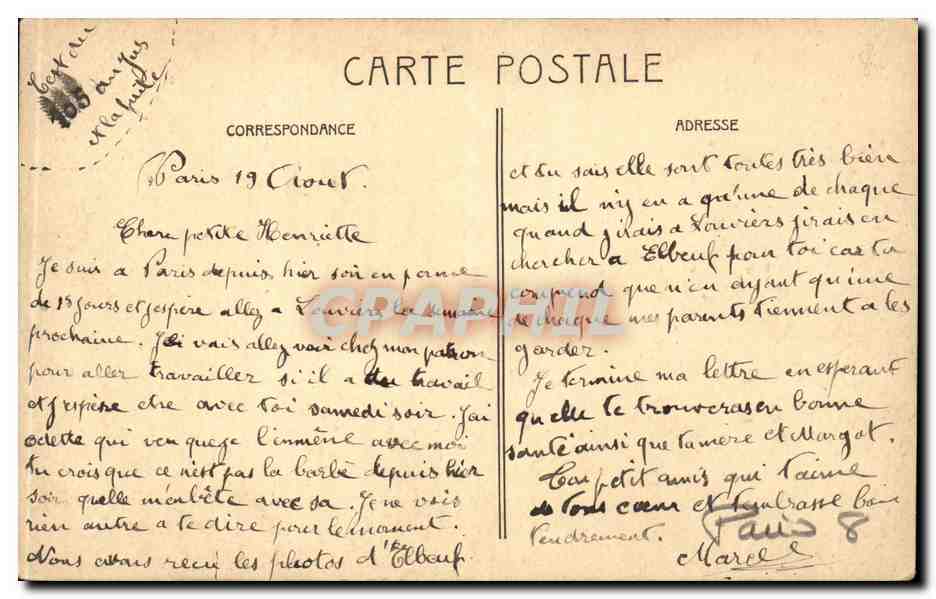 C'est du
105 au jus
et la fuite
CARTE POSTALE
CORRESPONDANCE
Paris 19 Aout.
Chere petite Henriette
Je suis a Paris depuis hier soir en perme
de 18 jours et jespère allez a Louviers la semaine
prochaine. Jai vais allez voir chez mon patron
pour aller travailler si il a du travail
et jespère etre avec toi samedi soir. Jai
odette qui veu queje l'enmêne avec moi
tu crois que ce n'est pas la barbe depuis hier
soir quelle m'enbête avec sa. Je ne vois
rien autre a te dire pour le moment.
Nous avons reçu les photos d'Elbeuf
ADRESSE
et tu sais elle sont toutes très bien
mais il n'y en a qu'une de chaque
quand jirais a Louviers jirais en
chercher a Elbeuf pour toi car tu
comprend que n'en ayant qu'une
de chaque mes parents tiennent a les
garder.
Je termine ma lettre en esperant
qu'elle te trouveras en bonne
santé ainsi que ta mère et Margot.
Ton petit amis qui t'aime
de tous cœur et t'embrasse bien
tendrement.
Marcel
Paris 8
CPAPHIL